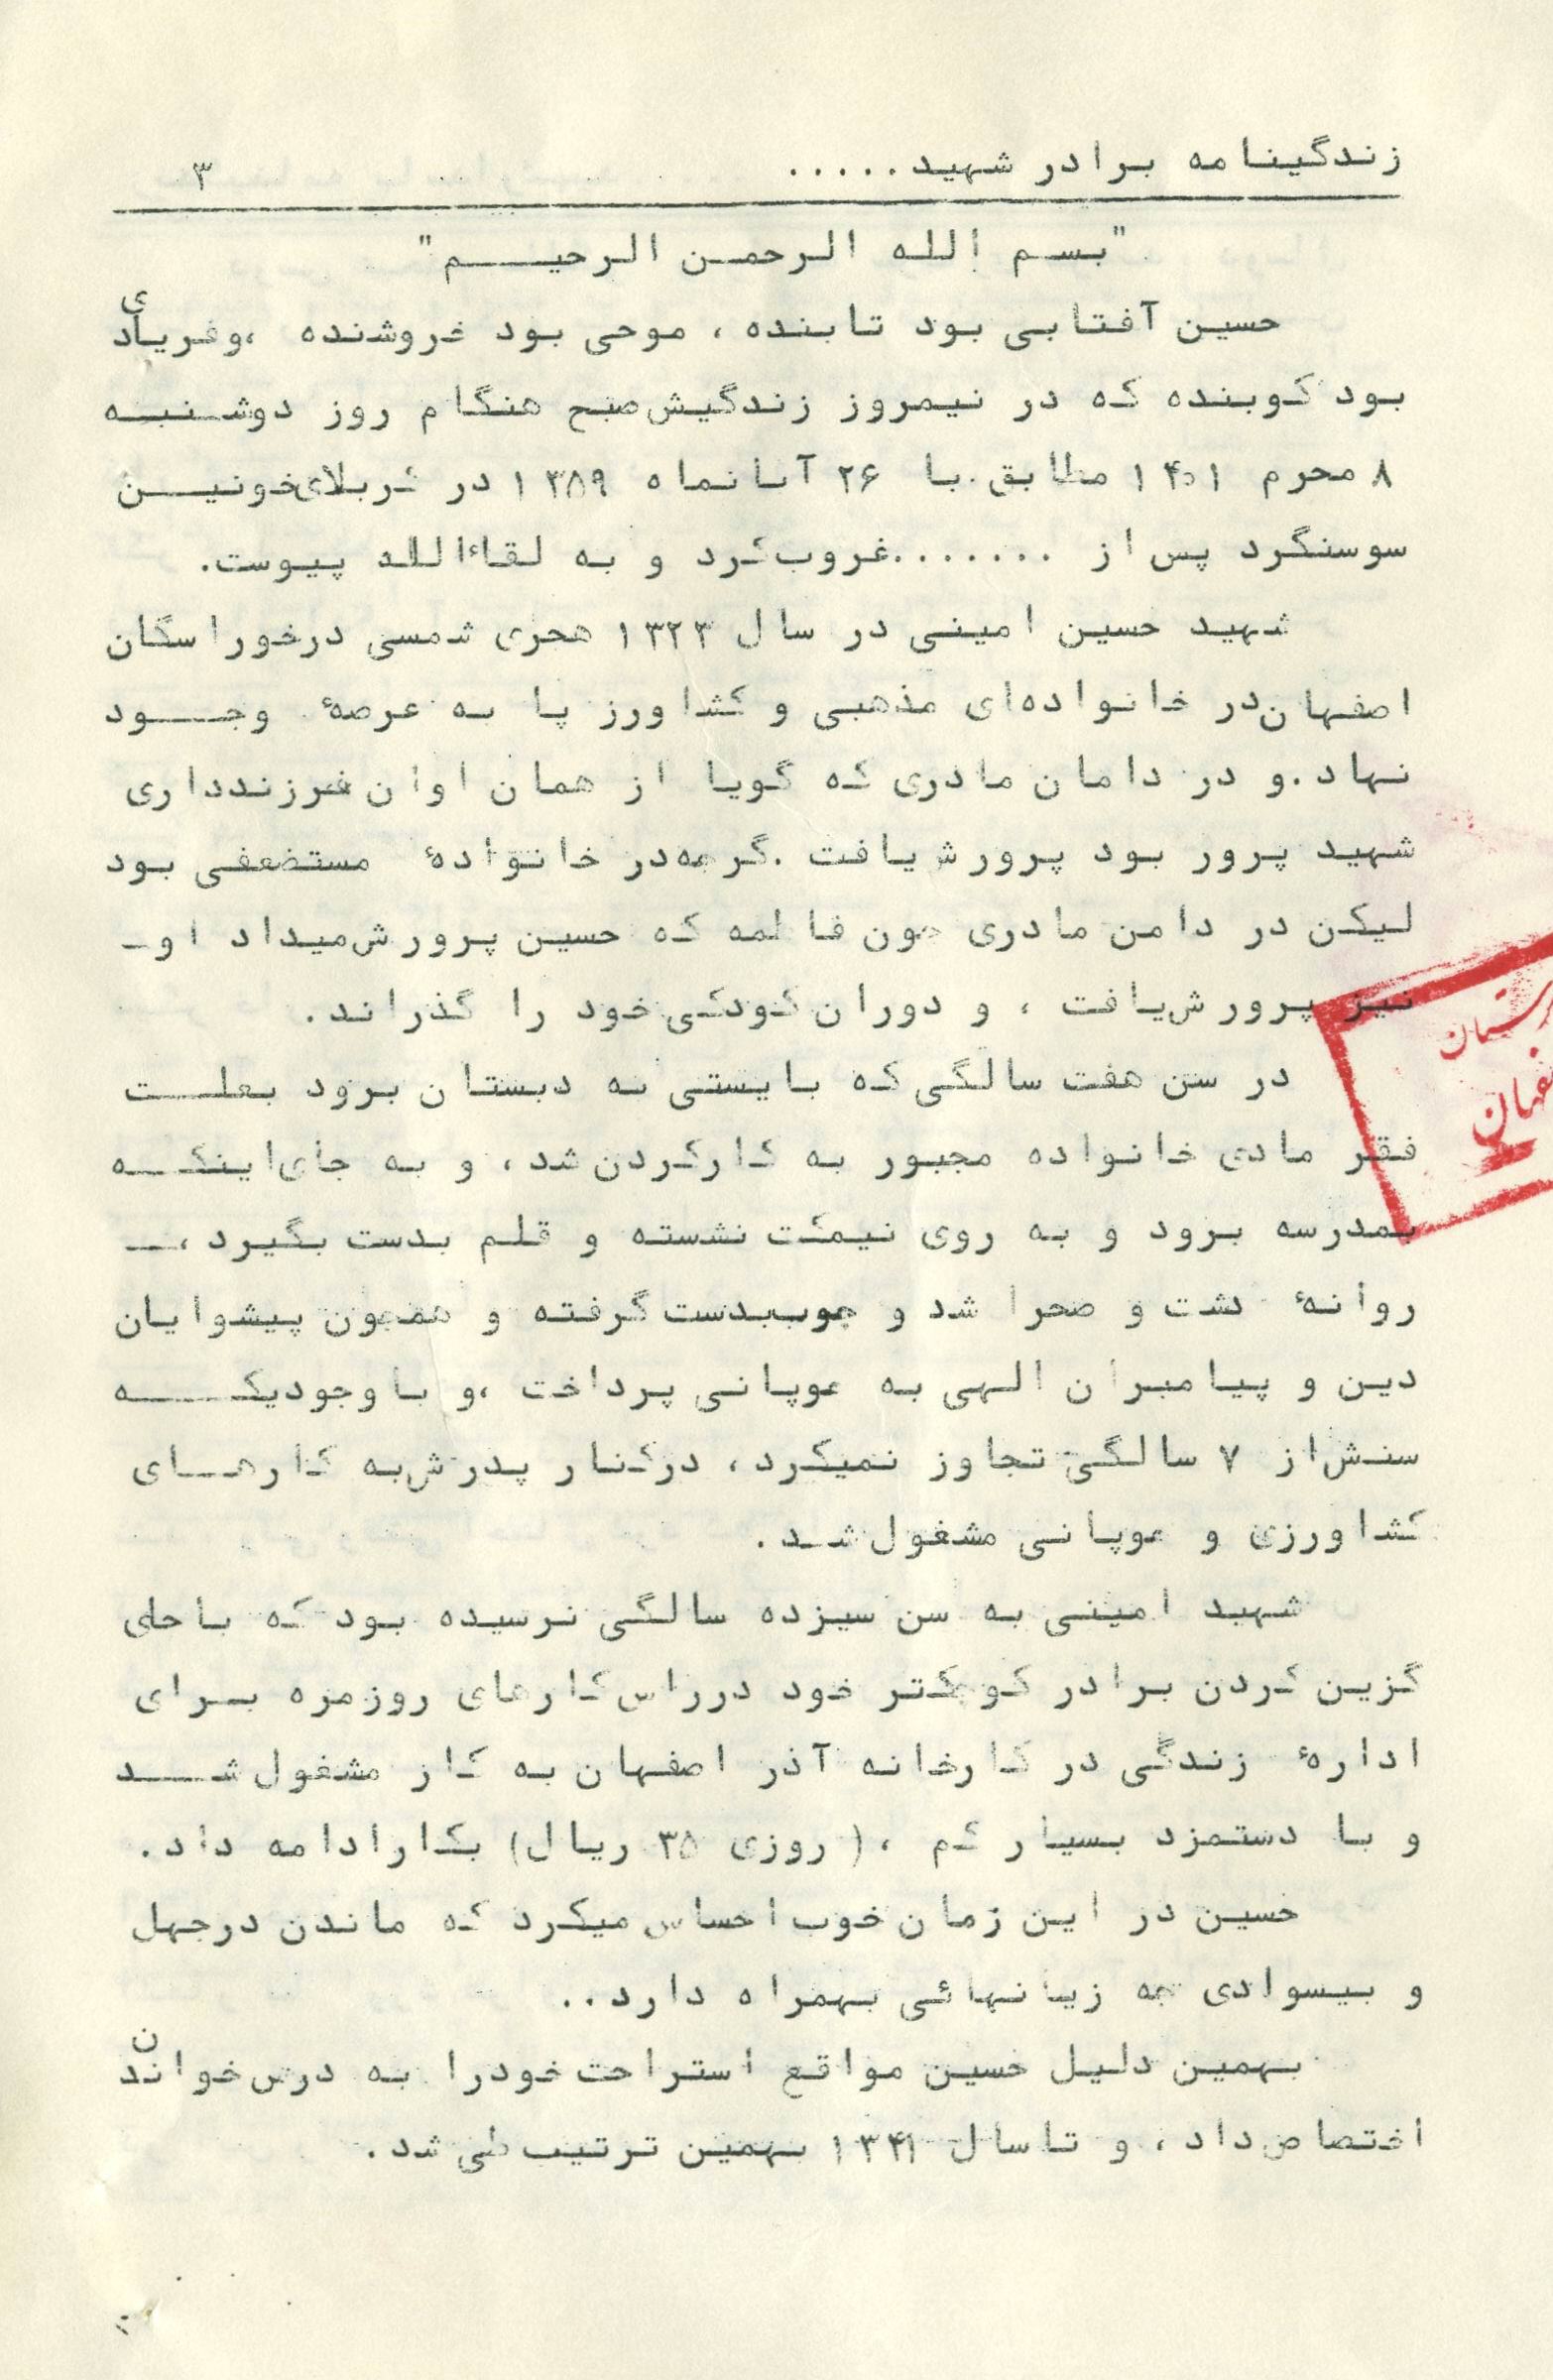 زندگینامه برادر شهید...... ۳
"بسم الله الرحمن الرحیم"
حسین آفتابی بود تابنده ، موجی بود خروشنده ،وفریادی
بود کوبنده که در نیمروز زندگیش صبح هنگام روز دوشنبه
۸ محرم ۱۴۰۱ مطابق با ۲۶ آبانماه ۱۳۵۹ در کربلای خونین
سوسنگرد پس از .......غروب کرد و به لقاءالله پیوست.
شهید حسین امینی در سال ۱۳۲۳ هجری شمسی درخوراسگان
اصفهان در خانواده‌ای مذهبی و کشاورز پا به عرصهٔ وجود
نهاد.و در دامان مادری که گویا از همان اوان فرزندداری
شهید پرور بود پرورش یافت .گرچه در خانوادهٔ مستضعفی بود
لیکن در دامن مادری چون فاطمه که حسین پرورش میداد او-
نیز پرورش یافت ، و دوران کودکی خود را گذراند.
در سن هفت سالگی که بایستی به دبستان برود بعلت
فقر مادی خانواده مجبور به کارکردن شد، و به جای اینکه
بمدرسه برود و به روی نیمکت نشسته و قلم بدست بگیرد ،-
روانهٔ دشت و صحرا شد و چوب بدست گرفته و همچون پیشوایان
دین و پیامبران الهی به چوپانی پرداخت ،و با وجودیکه
سنش از ۷ سالگی تجاوز نمیکرد، درکنار پدرش به کارهای
کشاورزی و چوپانی مشغول شد.
شهید امینی به سن سیزده سالگی نرسیده بود که باجای
گزین کردن برادر کوچکتر خود درراس کارهای روزمره برای
ادارهٔ زندگی در کارخانه آذر اصفهان به کار مشغول شد
و با دستمزد بسیار کم ،( روزی ۳۵ ریال) بکارادامه داد.
حسین در این زمان خوب احساس میکرد که ماندن درجهل
و بیسوادی چه زیانهائی بهمراه دارد..
بهمین دلیل حسین مواقع استراحت خودرا به درس خواندن
اختصاص داد، و تا سال ۱۳۴۱ بهمین ترتیب طی شد.